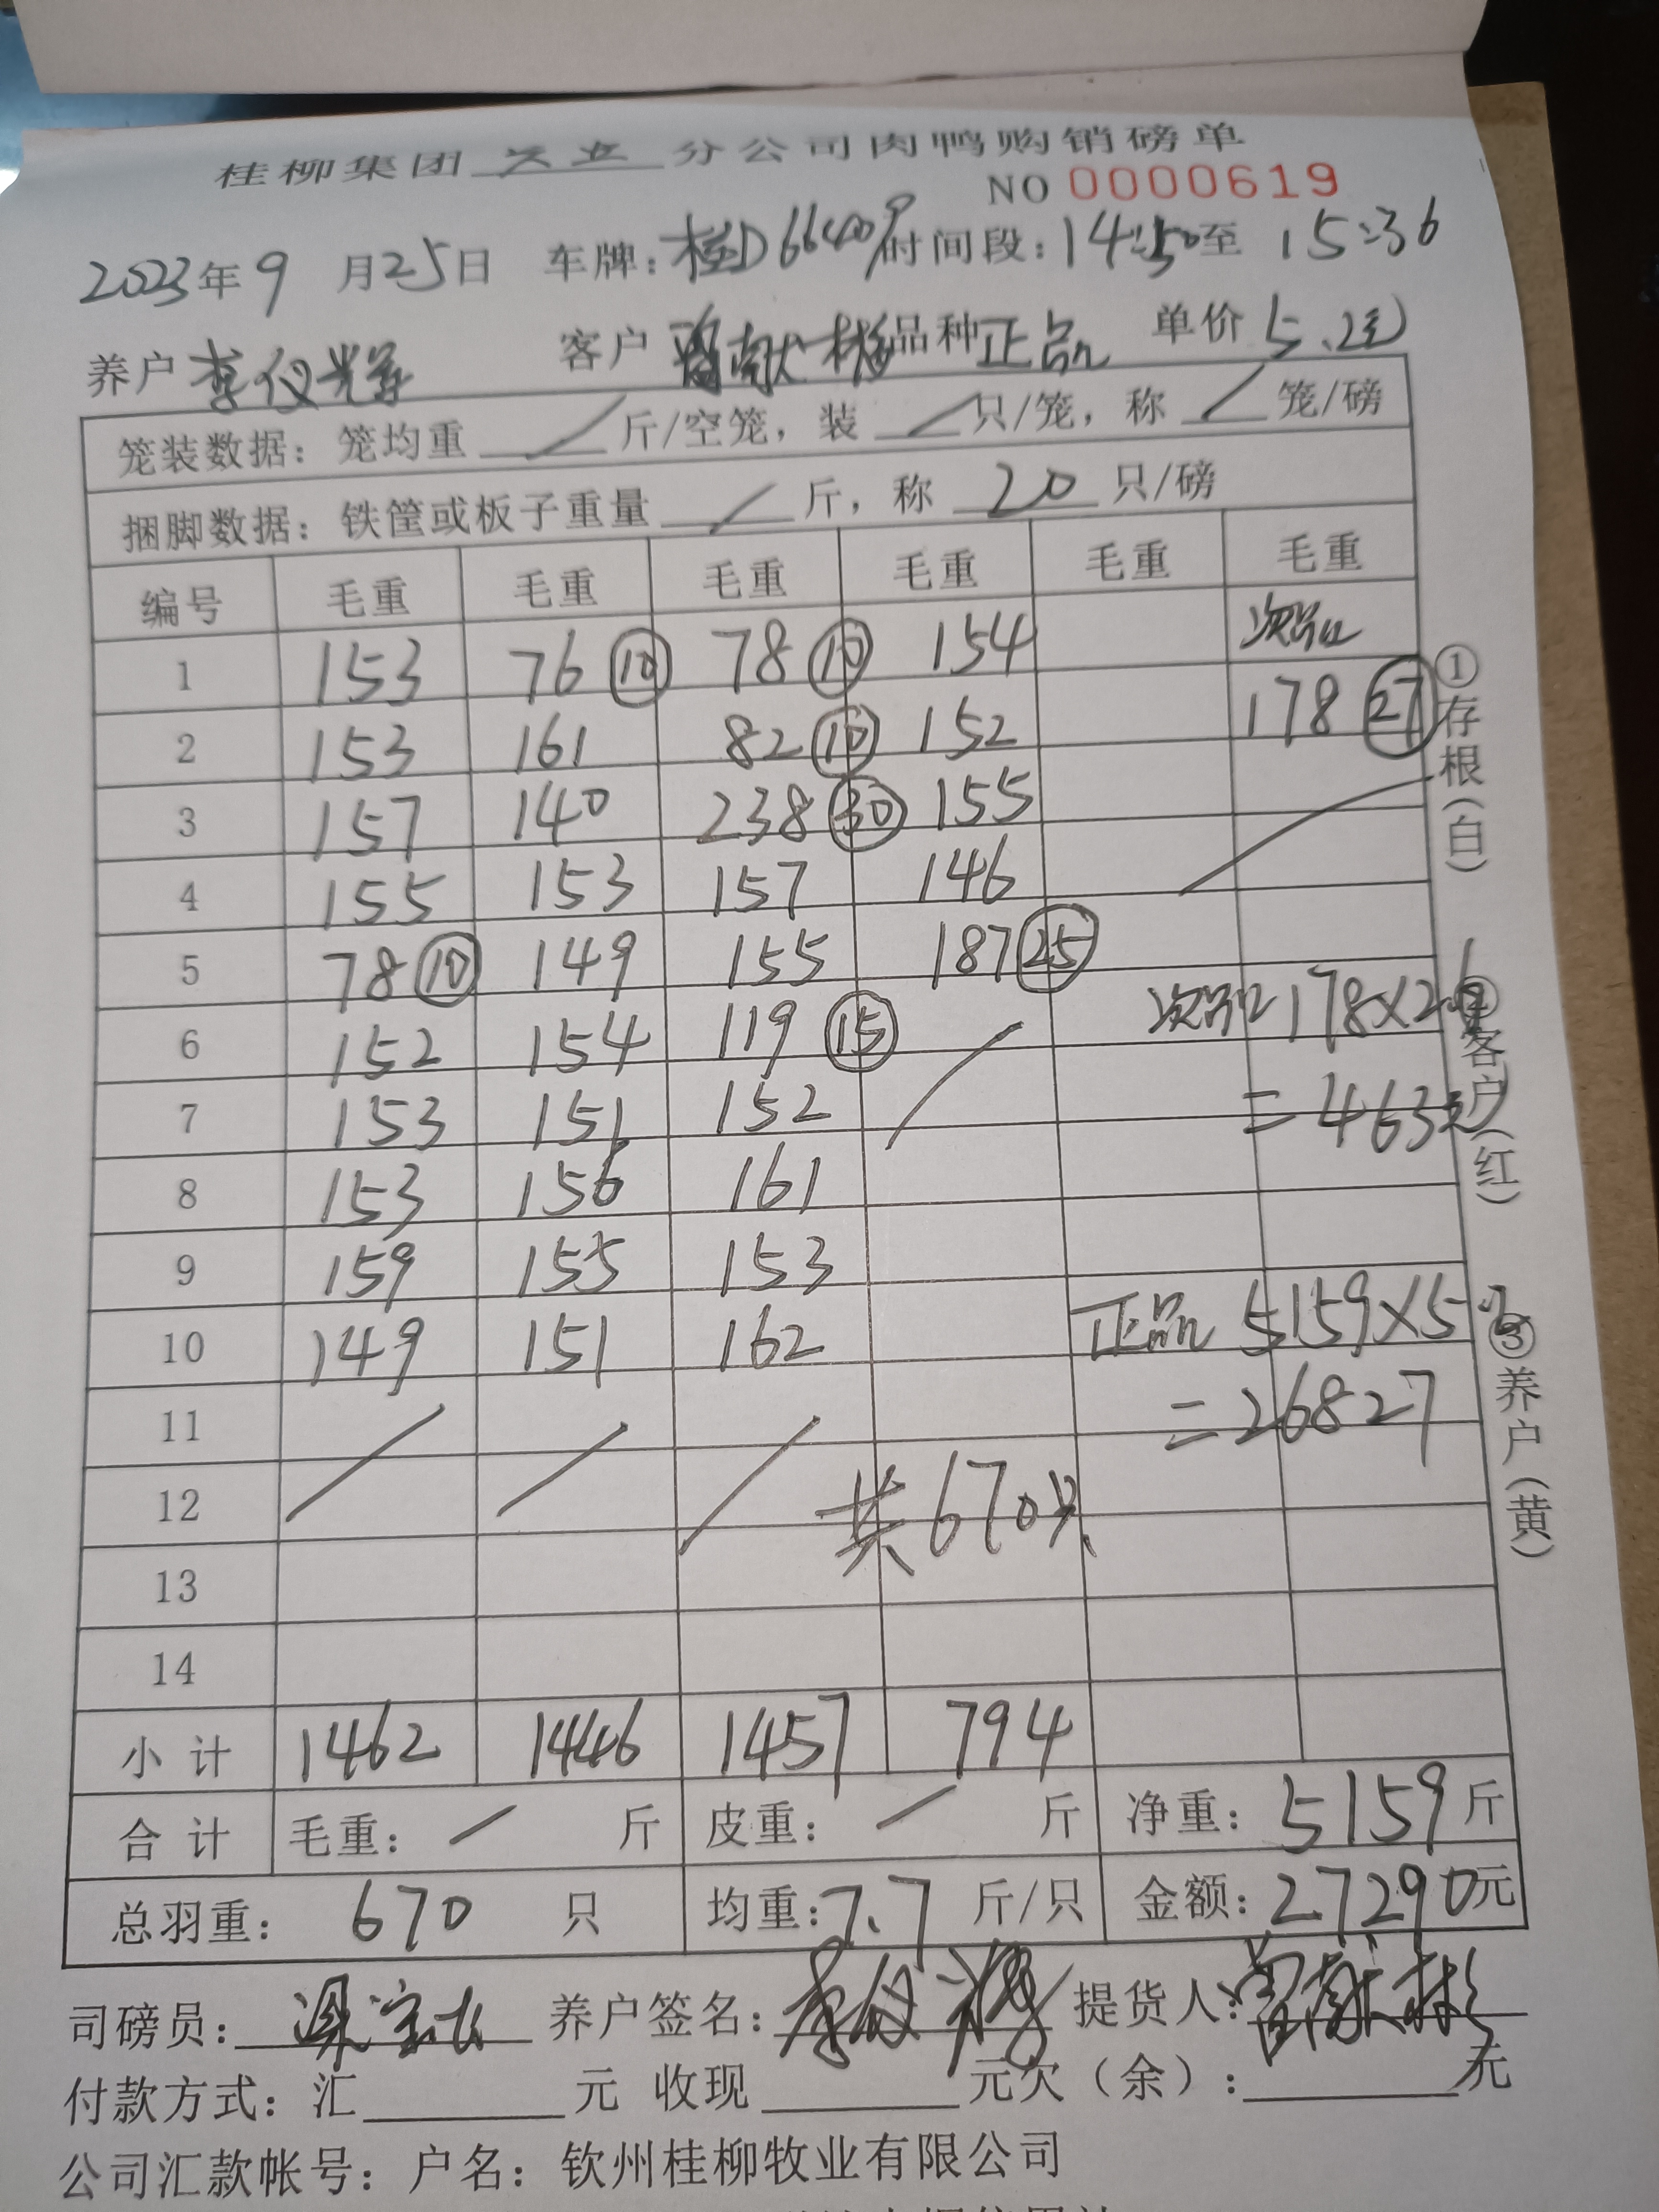 桂柳集团 兴业 分公司肉鸭购销磅单
NO 0000619
2023年9月25日 车牌：桂D66409 时间段：14:50至15:36
养户 李仪光 客户 曾献彬 品种 正品 单价 5.2元
笼装数据：笼均重 / 斤/空笼，装 / 只/笼，称 / 笼/磅
捆脚数据：铁筐或板子重量 / 斤，称 20 只/磅
编号 毛重 毛重 毛重 毛重 毛重 毛重
次品
1 153 76 ⑩ 78 ⑩ 154
178 ㉗
2 153 161 82 ⑩ 152
3 157 140 238 ㉚ 155
4 155 153 157 146
5 78 ⑩ 149 155 187 ㉕
6 152 154 119 ⑮ 次品 178×2.6
7 153 151 152 =463元
8 153 156 161
9 159 155 153
10 149 151 162 正品 5159×5.2
11 =26827
12 共670只
13
14
小计 1462 1446 1457 794
合计 毛重： / 斤 皮重： / 斤 净重：5159斤
总羽重： 670 只 均重：7.7 斤/只 金额：27290元
司磅员： 养户签名：李仪 提货人：曾献彬
付款方式：汇 元 收现 元欠（余）： 元
公司汇款帐号：户名：钦州桂柳牧业有限公司
①存根（白）
②客户（红）
③养户（黄）